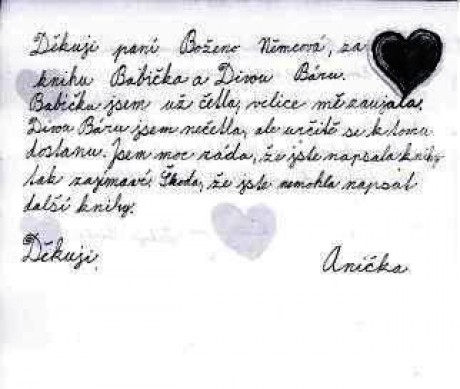 Děkuji paní Boženo Němcová, za
knihu Babička a Divou Báru.
Babičku jsem už četla, velice mě zaujala,
Divou Báru jsem nečetla, ale určitě se k tomu
dostanu. Jsem moc ráda, že jste napsala knihy
tak zajímavé. Škoda, že jste nemohla napsat
další knihy.
Děkuji,
Anička